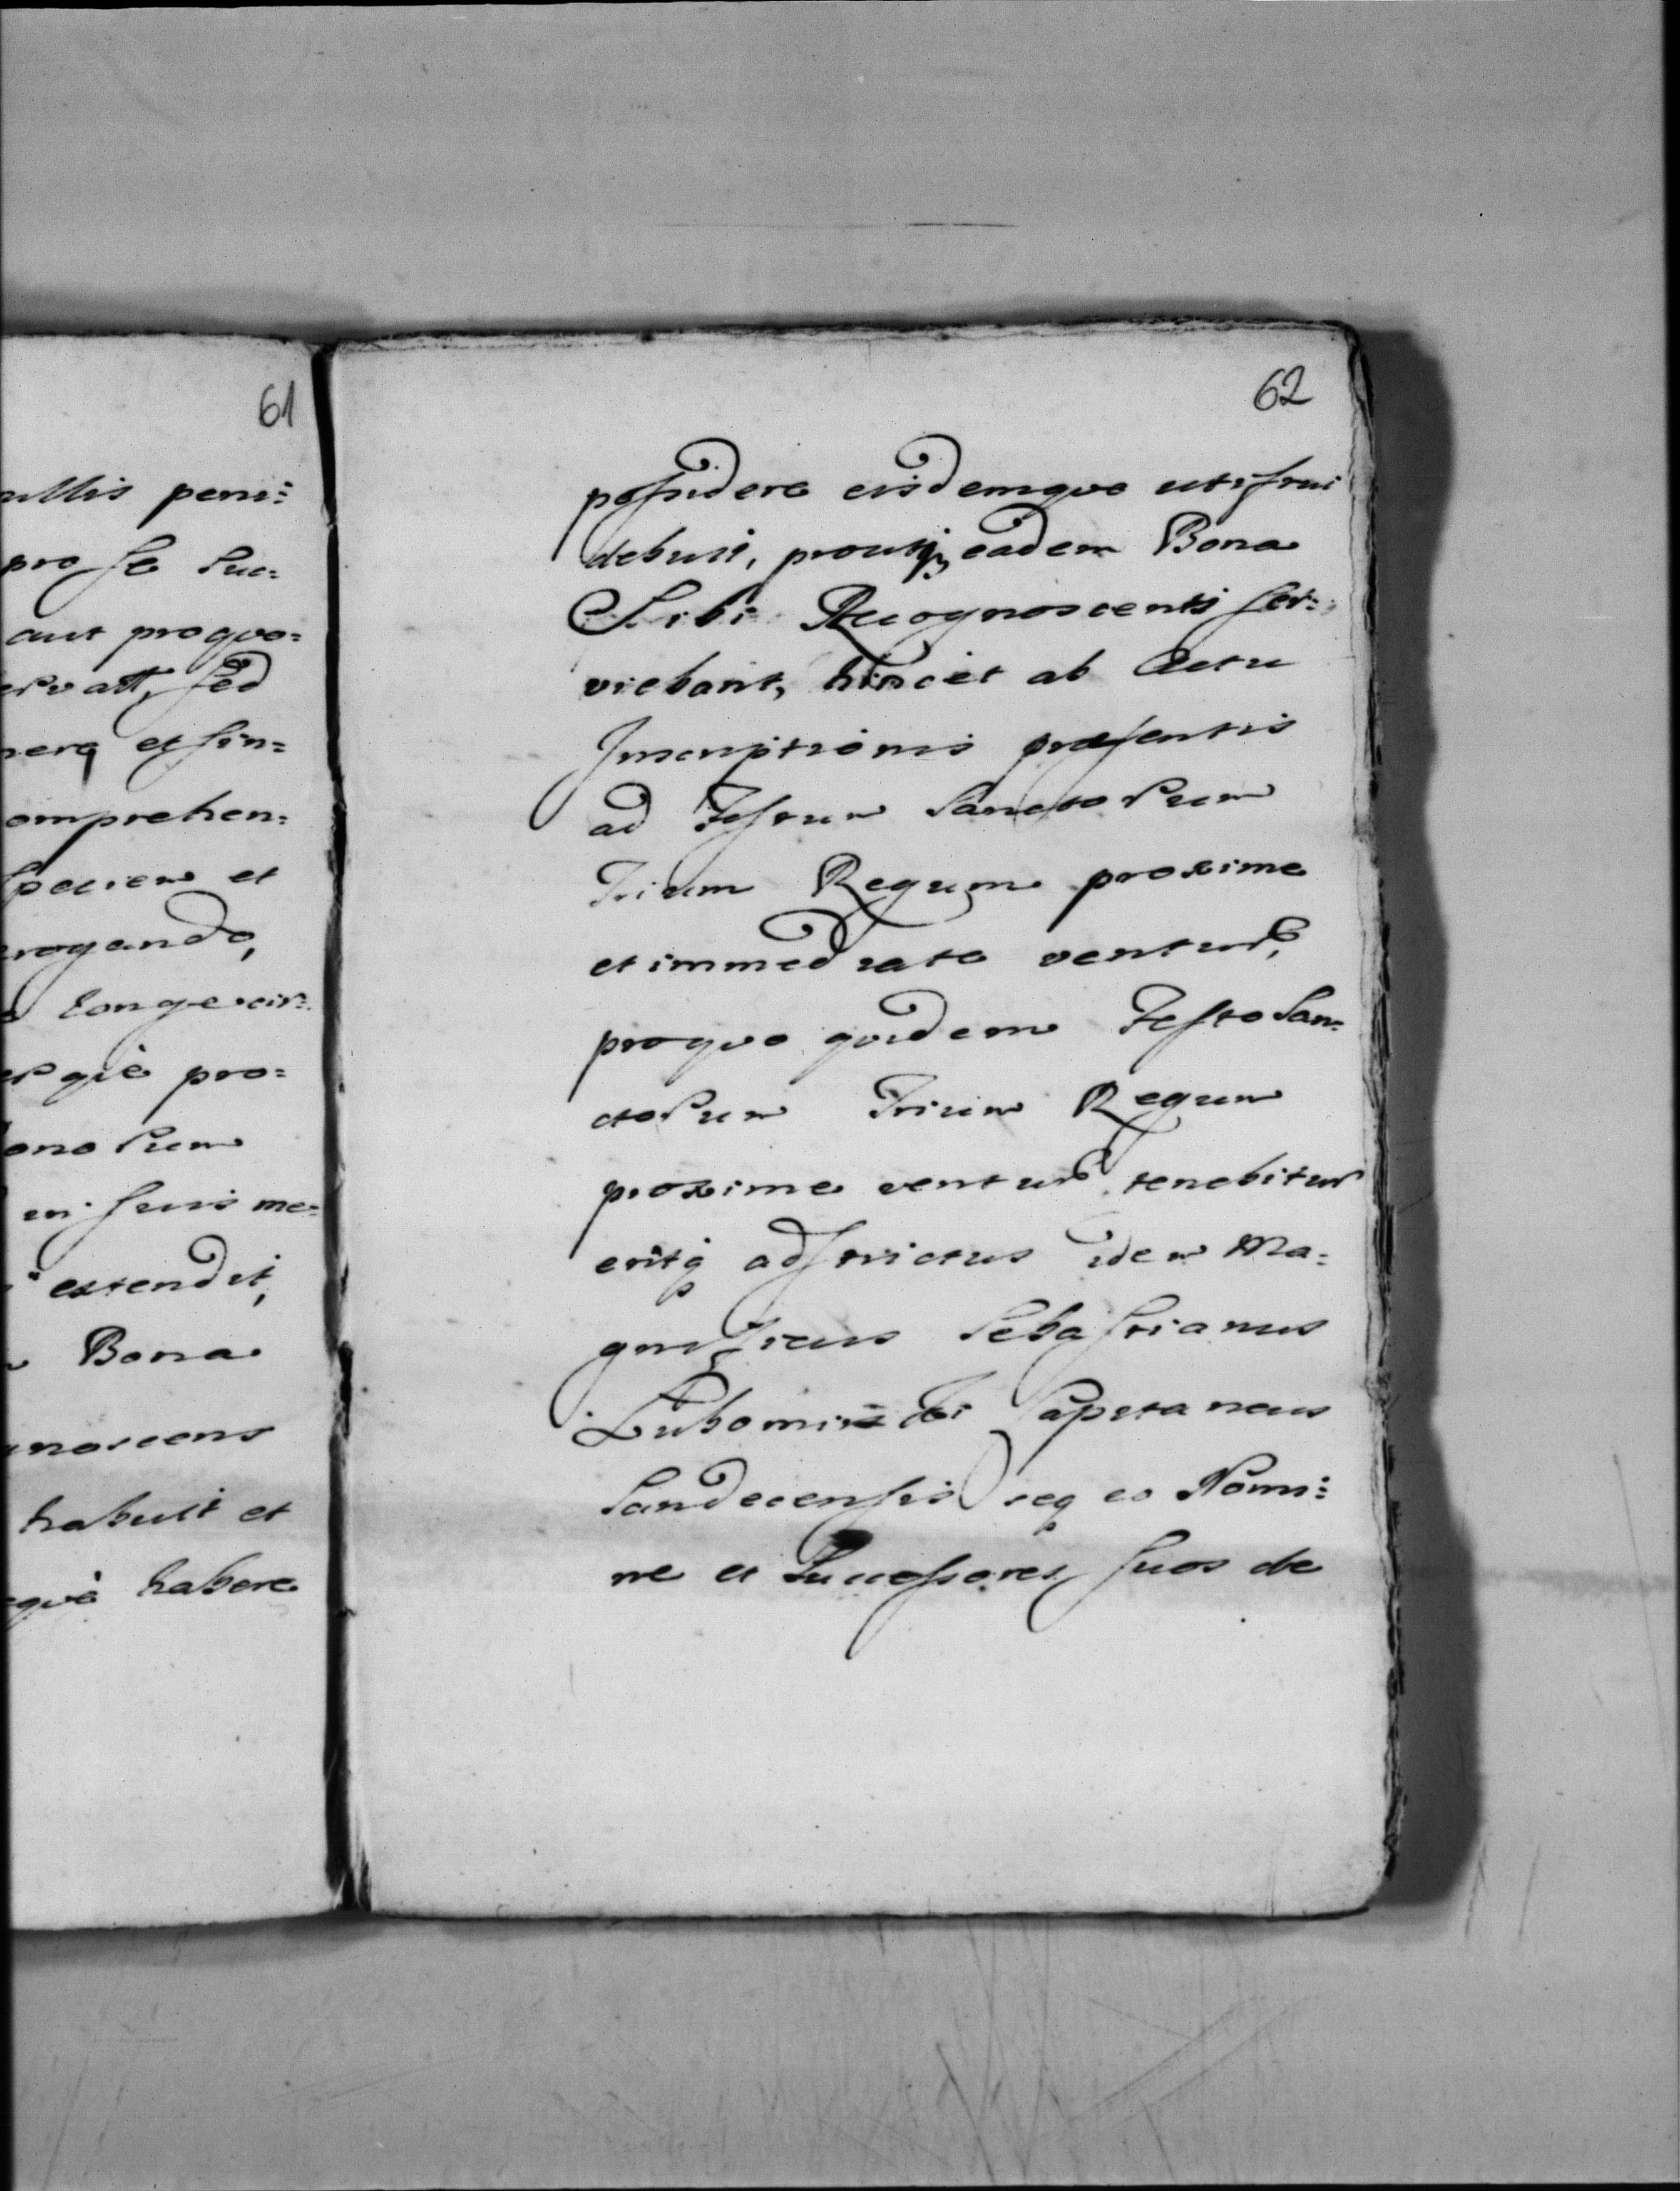 61
ullis peni=
pro se Suc=
aut pro quo=
ervatt, sed
nerq et sin=
omprehen=
speciem et
rogando,
longe cir=
ergiè pro=
onorum
in suis me=
extendit,
Bona
gnoscens
habuit et
què habere
62
possidere eisdemque uti frui
debuit, proutq3 eadem Bona
Sibi Recognoscenti ser=
viebant, hinc et ab Actu
Inscriptionis præsentis
ad Festum Sanctorum
Trium Regum proxime
et immediate ventur,
pro quo quidem Festo San=
ctorum Trium Regum
proxime ventur tenebitur
eritq adstrictus idem Ma=
gnificus Sebastianus
Lubomirski Capitaneus
Sandecensis seq eo Nomi=
ne et Successores suos de